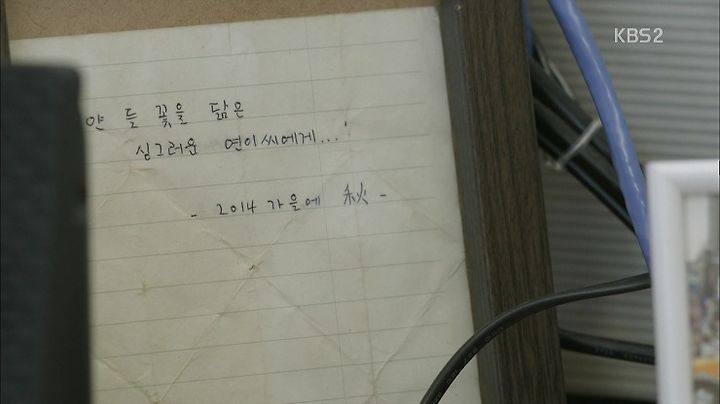 KBS2
얀 들꽃을 닮은
싱그러운 연이씨에게...
- 2014 가을에 秋 -